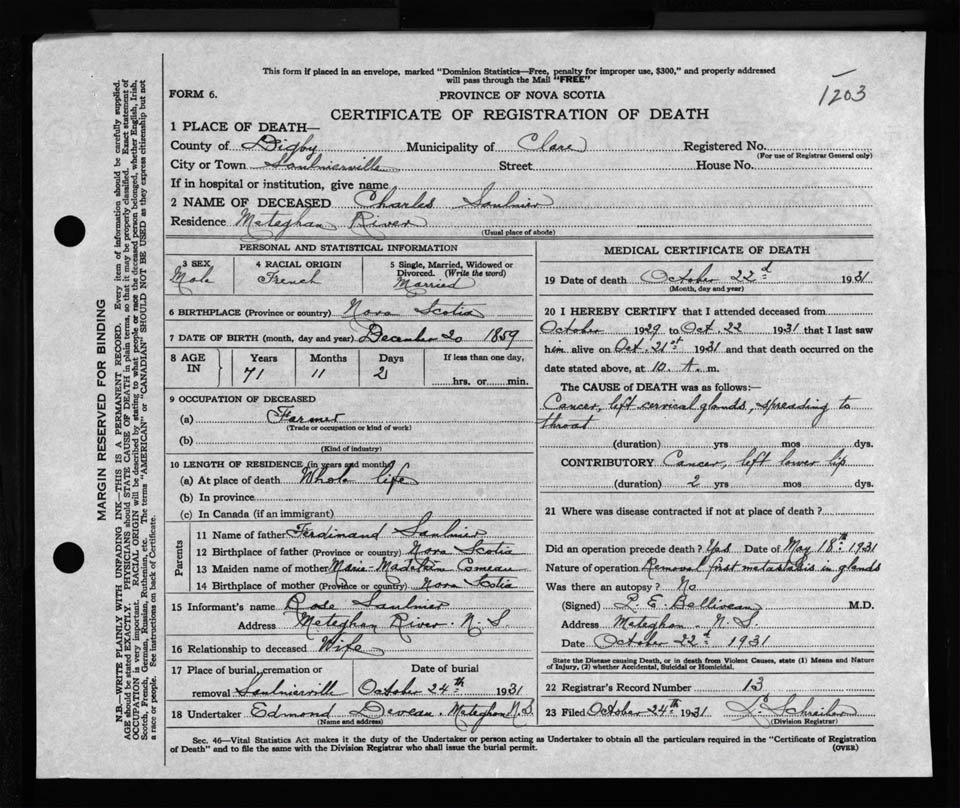 This form if placed in an envelope, marked "Dominion Statistics—Free, penalty for improper use, $300," and properly addressed
will pass through the Mail "FREE"
1203
FORM 6.
PROVINCE OF NOVA SCOTIA
CERTIFICATE OF REGISTRATION OF DEATH
1 PLACE OF DEATH—
County of Digby Municipality of Clare Registered No.
(For use of Registrar General only)
City or Town Saulnierville Street House No.
If in hospital or institution, give name
2 NAME OF DECEASED Charles Saulnier
Residence Meteghan River
(Usual place of abode)
PERSONAL AND STATISTICAL INFORMATION
3 SEX 4 RACIAL ORIGIN 5 Single, Married, Widowed or
Divorced. (Write the word)
Male French Married
6 BIRTHPLACE (Province or country) Nova Scotia
7 DATE OF BIRTH (month, day and year) December 20 1859
8 AGE IN Years Months Days If less than one day,
71 11 2 hrs. or min.
9 OCCUPATION OF DECEASED
(a) Farmer
(Trade or occupation or kind of work)
(b)
(Kind of industry)
10 LENGTH OF RESIDENCE (in years and months)
(a) At place of death Whole life
(b) In province
(c) In Canada (if an immigrant)
Parents
11 Name of father Ferdinand Saulnier
12 Birthplace of father (Province or country) Nova Scotia
13 Maiden name of mother Marie Comeau
14 Birthplace of mother (Province or country) Nova Scotia
15 Informant's name Rose Saulnier
Address Meteghan River N.S.
16 Relationship to deceased Wife
17 Place of burial, cremation or Date of burial
removal Saulnierville October 24th 1931
18 Undertaker Edmond Deveau Meteghan N.S.
(Name and address)
MEDICAL CERTIFICATE OF DEATH
19 Date of death October 22d 1931
(Month, day and year)
20 I HEREBY CERTIFY that I attended deceased from
October 1929 to Oct. 22 1931 that I last saw
him alive on Oct. 21st 1931 and that death occurred on the
date stated above, at 10. A. m.
The CAUSE of DEATH was as follows:—
Cancer, left cervical glands, spreading to
throat
(duration) yrs mos dys.
CONTRIBUTORY Cancer, left lower lip
(duration) 2 yrs mos dys.
21 Where was disease contracted if not at place of death?
Did an operation precede death? Yes Date of May 18th 1931
Nature of operation Removal first metastasis in glands
Was there an autopsy? No
(Signed) L. E. Belliveau M.D.
Address Meteghan. N.S.
Date October 22d 1931
State the Disease causing Death, or in death from Violent Causes, state (1) Means and Nature
of Injury, (2) whether Accidental, Suicidal or Homicidal.
22 Registrar's Record Number 13
23 Filed October 24th 1931
(Division Registrar)
Sec. 46—Vital Statistics Act makes it the duty of the Undertaker or person acting as Undertaker to obtain all the particulars required in the "Certificate of Registration
of Death" and to file the same with the Division Registrar who shall issue the burial permit.
(OVER)
MARGIN RESERVED FOR BINDING
N.B.—WRITE PLAINLY WITH UNFADING INK—THIS IS A PERMANENT RECORD. Every item of information should be carefully supplied.
AGE should be stated EXACTLY. PHYSICIANS should STATE CAUSE OF DEATH in plain terms, so that it may be properly classified. Exact statement of
OCCUPATION is very important. RACIAL ORIGIN will be described by stating to what people or race the deceased person belonged, whether English, Irish,
Scotch, French, German, Russian, Ruthenian, etc. The terms "AMERICAN" or "CANADIAN" SHOULD NOT BE USED as they express citizenship but not
a race or people. See instructions on back of Certificate.